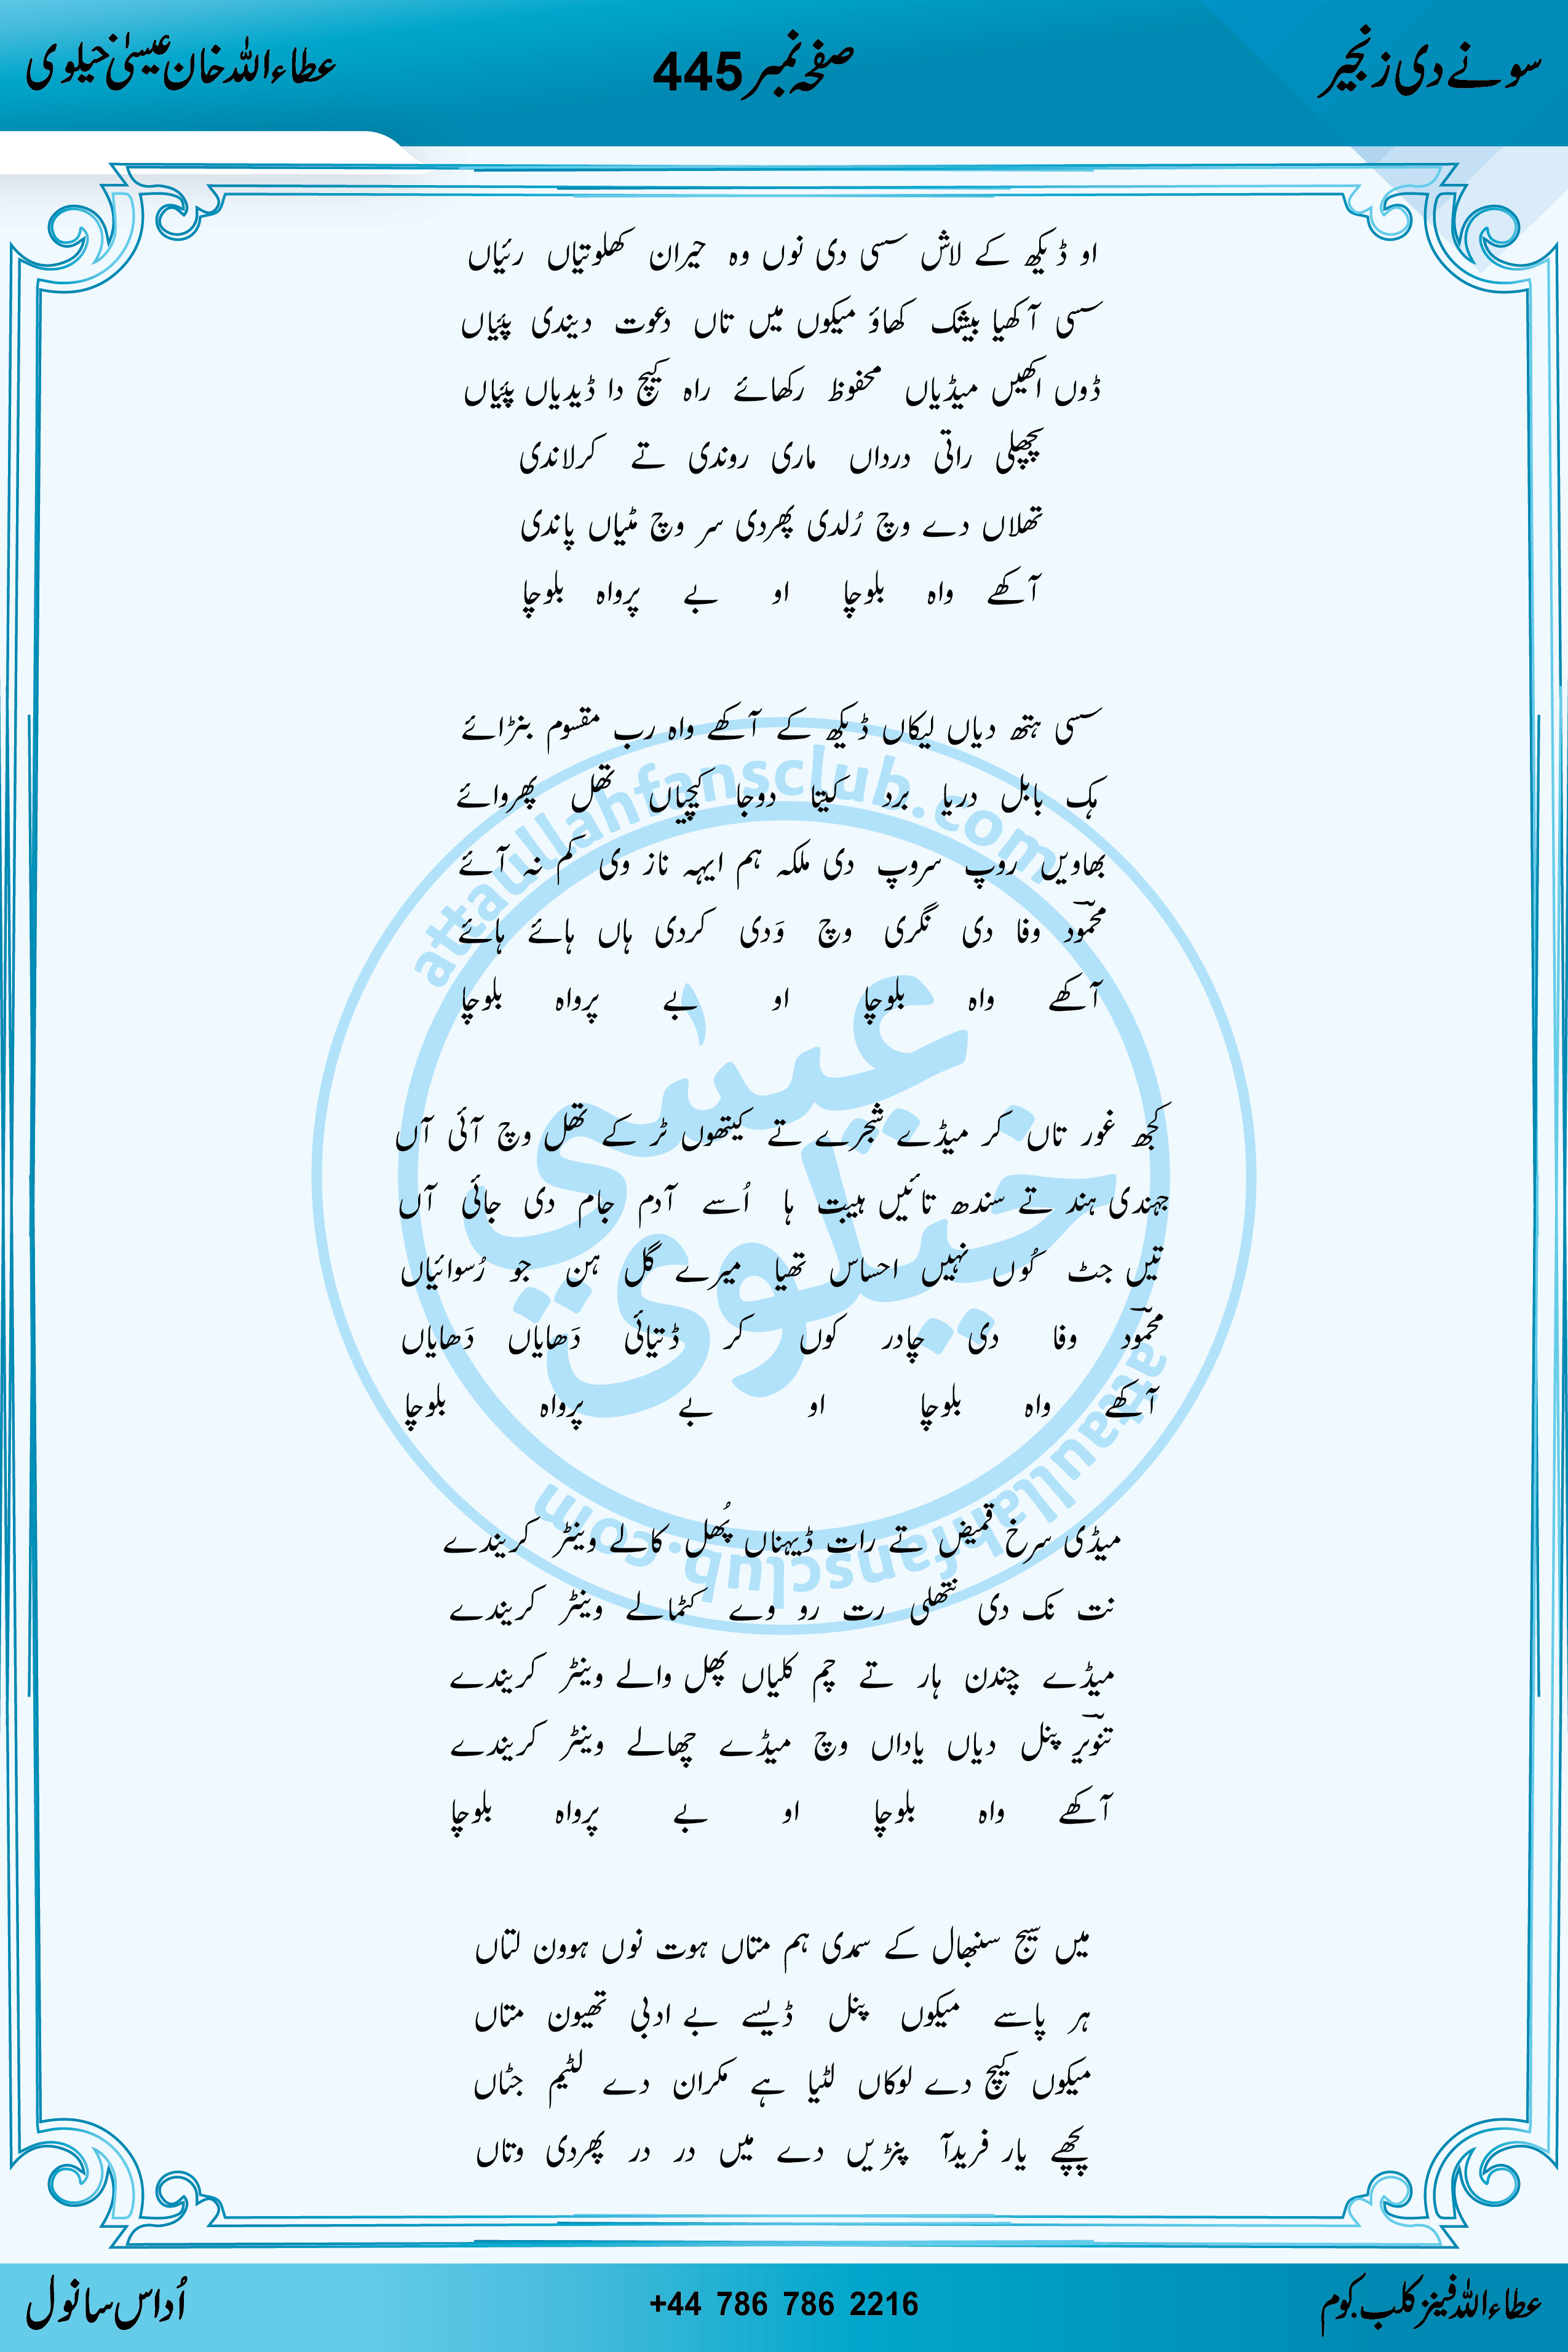 سونے دی زنجیر
صفحہ نمبر 445
عطاءاللہ خان عیسیٰ خیلوی
او ڈیکھ کے لاش سسی دی نوں وہ حیران کھلوتیاں رئیاں
سسی آکھیا بیشک کھاؤ میکوں میں تاں دعوت دیندی پئیاں
ڈوں اکھیں میڈیاں محفوظ رکھائے راہ کیچ دا ڈیدیاں پئیاں
پچھلی راتی درداں ماری روندی تے کرلاندی
تھلاں دے وچ رُلدی پھردی سر وچ مٹیاں پاندی
آکھے واہ بلوچا او بے پرواہ بلوچا
سسی ہتھ دیاں لیکاں ڈیکھ کے آکھے واہ رب مقسوم بنڑائے
ہک بابل دریا برد کیتا دوجا کیچیاں تھل پھروائے
بھاویں روپ سروپ دی ملکہ ہم ایہہ ناز وی کم نہ آئے
محمودؔ وفا دی نگری وچ وَدی کردی ہاں ہائے ہائے
آکھے واہ بلوچا او بے پرواہ بلوچا
کجھ غور تاں کر میڈے شجرے تے کیتھوں ٹر کے تھل وچ آئی آں
جہندی ہند تے سندھ تائیں ہیبت ہا اُسے آدم جام دی جائی آں
تیں جٹ کُوں نہیں احساس تھیا میرے گل ہن جو رُسوائیاں
محمودؔ وفا دی چادر کوں کر ڈتیائی دَھایاں دَھایاں
آکھے واہ بلوچا او بے پرواہ بلوچا
میڈی سرخ قمیض تے رات ڈیہناں پُھل کالے وینٹر کریندے
نت نک دی نتھلی رت رو وے کٹمالے وینٹر کریندے
میڈے چندن ہار تے چم کلیاں پھل والے وینٹر کریندے
تنویرؔ پنل دیاں یاداں وچ میڈے چھالے وینٹر کریندے
آکھے واہ بلوچا او بے پرواہ بلوچا
میں سیج سنبھال کے سمدی ہم متاں ہوت نوں ہوون لتاں
ہر پاسے میکوں پنل ڈیسے بے ادبی تھیون متاں
میکوں کیچ دے لوکاں لٹیا ہے مکران دے لٹیم جٹاں
پچھے یار فریدآ پنڑیں دے میں در در پھردی وتاں
attaullahfansclub.com
عیسٰی
خیلوی
attaullahfansclub.com
عطاءاللہ فینز کلب.کوم
+44 786 786 2216
اُداس سانول